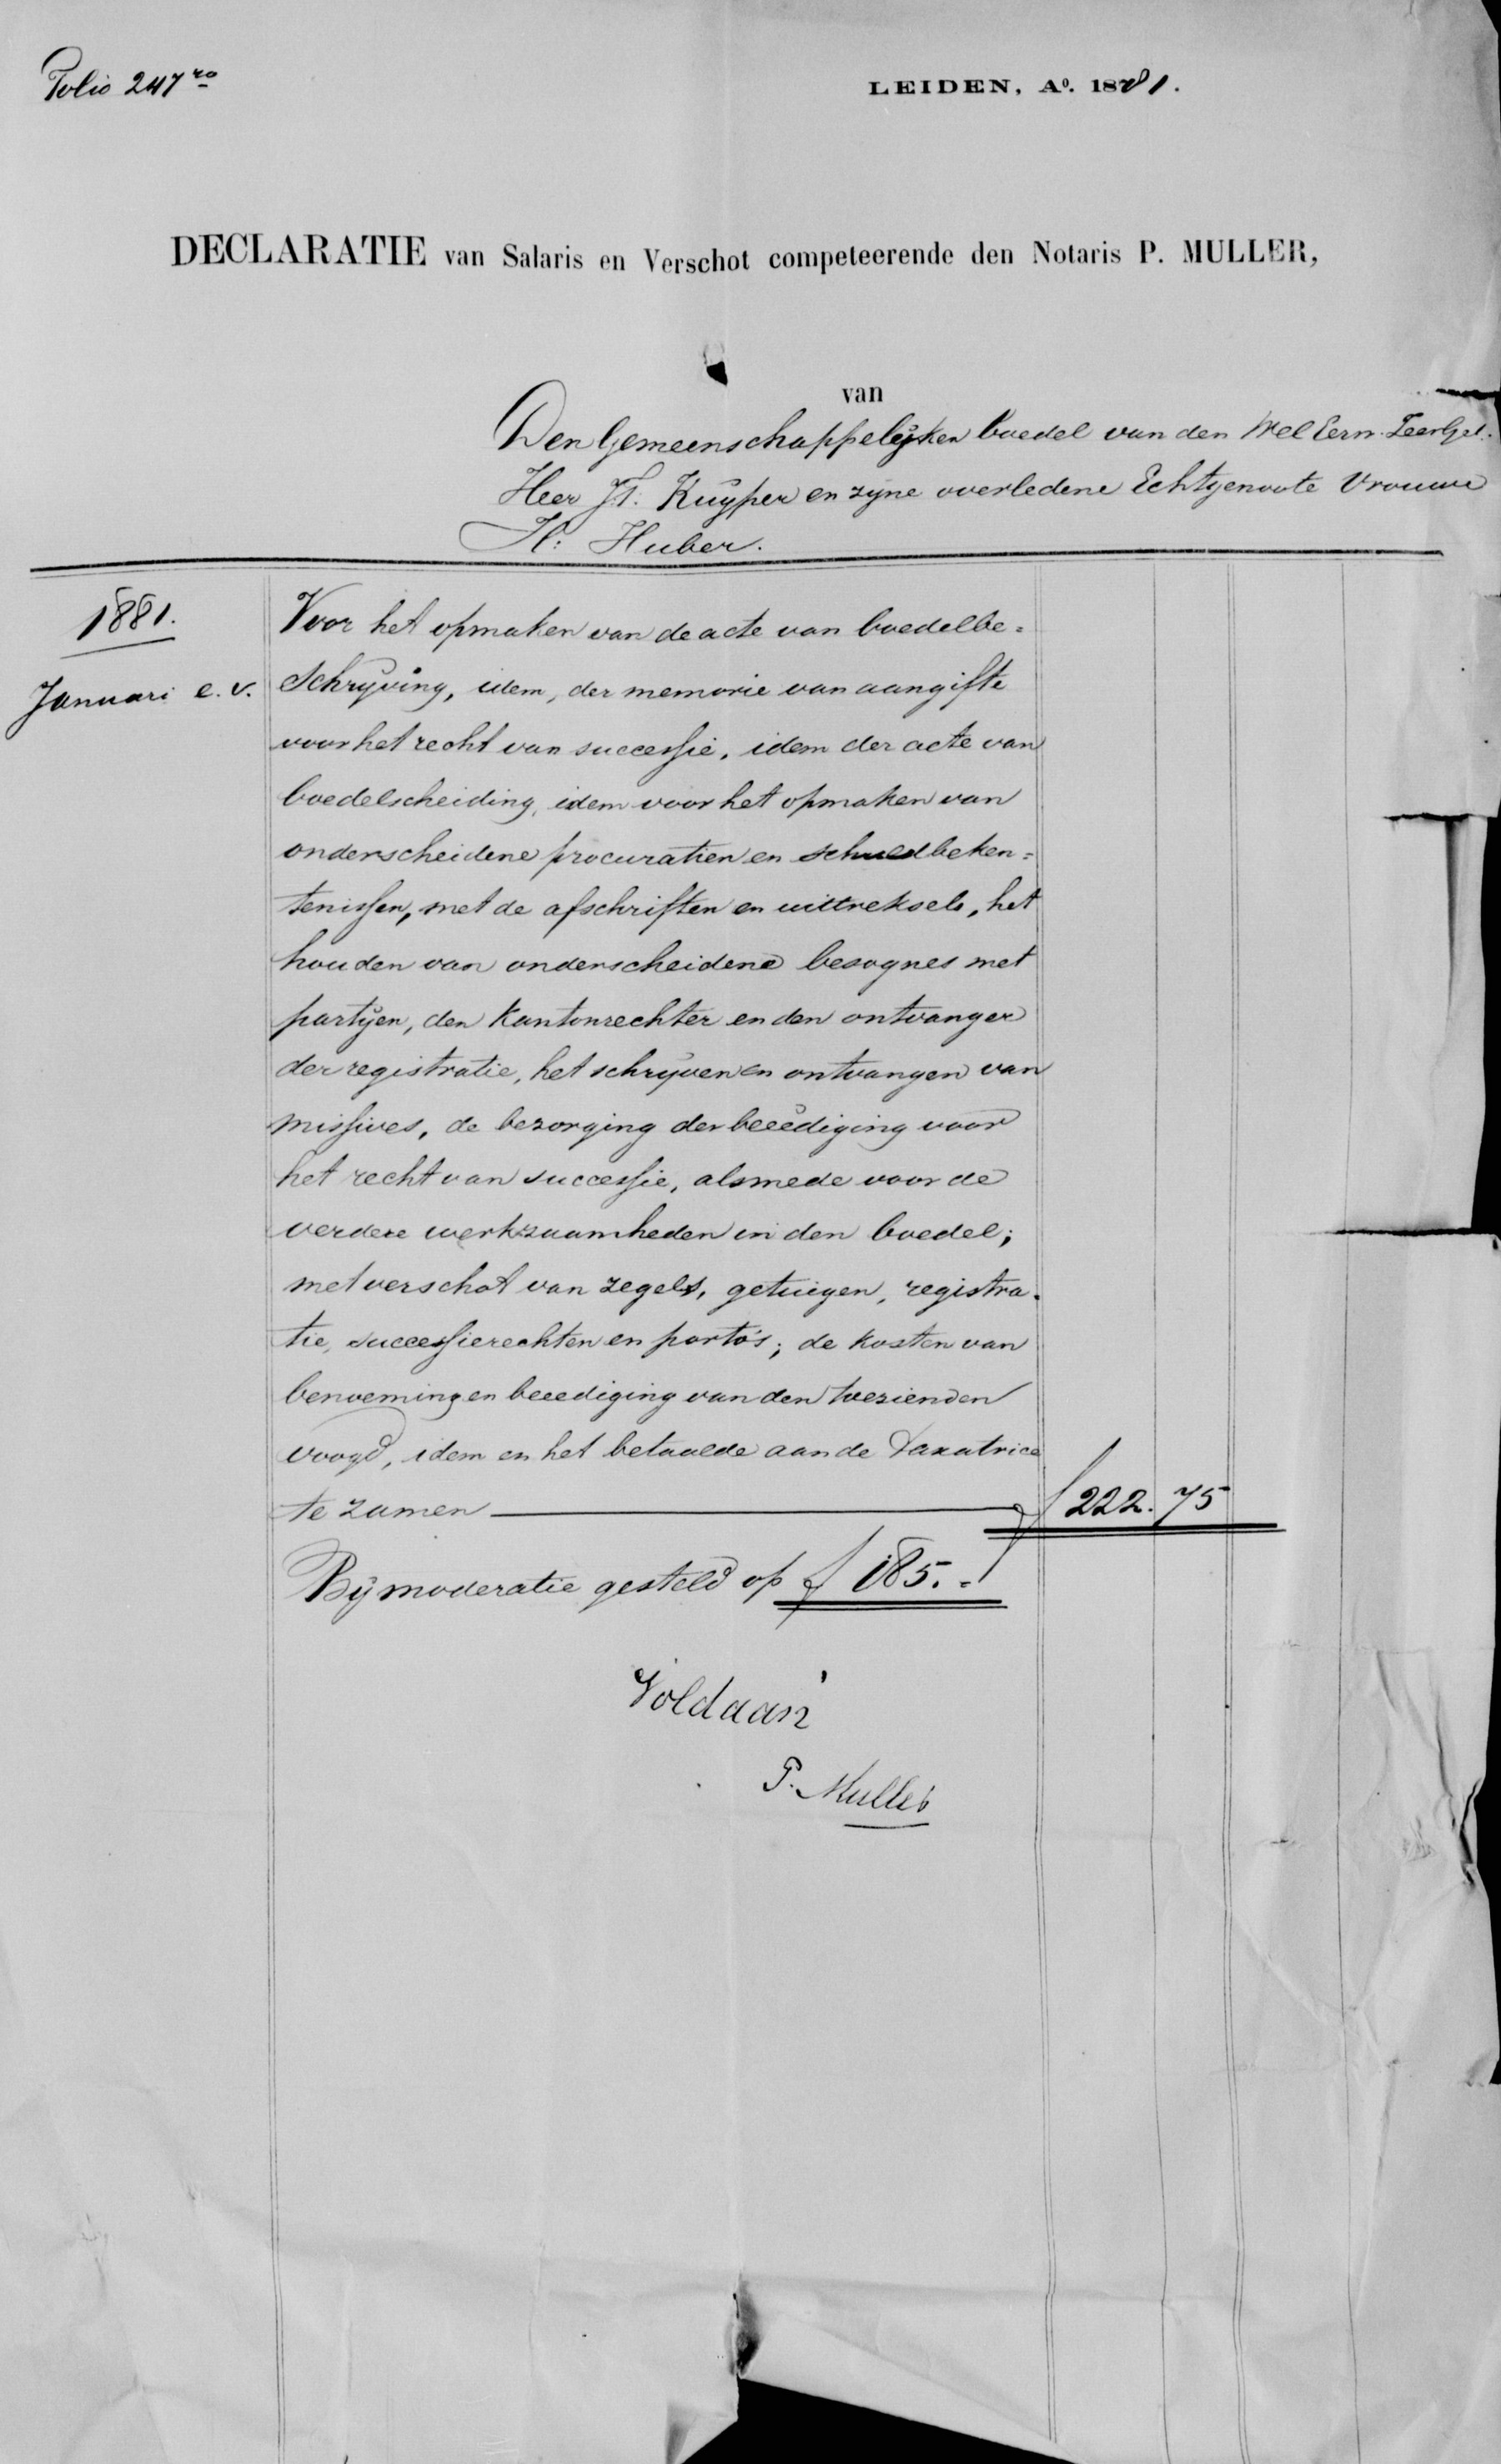 Folio 247ro
LEIDEN, Ao. 1881.
DECLARATIE van Salaris en Verschot competeerende den Notaris P. MULLER,
van
Den Gemeenschappelijken boedel van den Wel Eerw. ZeerGel.
Heer Kuyper en zijne overledene Echtgenoote Vrouwe
H: Huber.
1881.
Voor het opmaken van de acte van boedelbe=
Januari e. v.
schrijving, idem, der memorie van aangifte
voor het recht van successie, idem der acte van
boedelscheiding, idem voor het opmaken van
onderscheidene procuratien en schuldbeken=
tenissen, met de afschriften en uittreksels, het
houden van onderscheidene besognes met
partijen, den Kantonrechter en den ontvanger
der registratie, het schrijven en ontvangen van
missives, de bezorging der beeediging voor
het recht van successie, alsmede voor de
verdere werkzaamheden in den boedel;
met verschot van zegels, getuigen, registra=
tie, successierechten en porto's; de kosten van
benoeming en beeediging van den toezienden
voogd, idem en het betaalde aan de taxatrice
te zamen f 222. 75
Bij moderatie gesteld op f 185.=
Voldaan
P. Muller